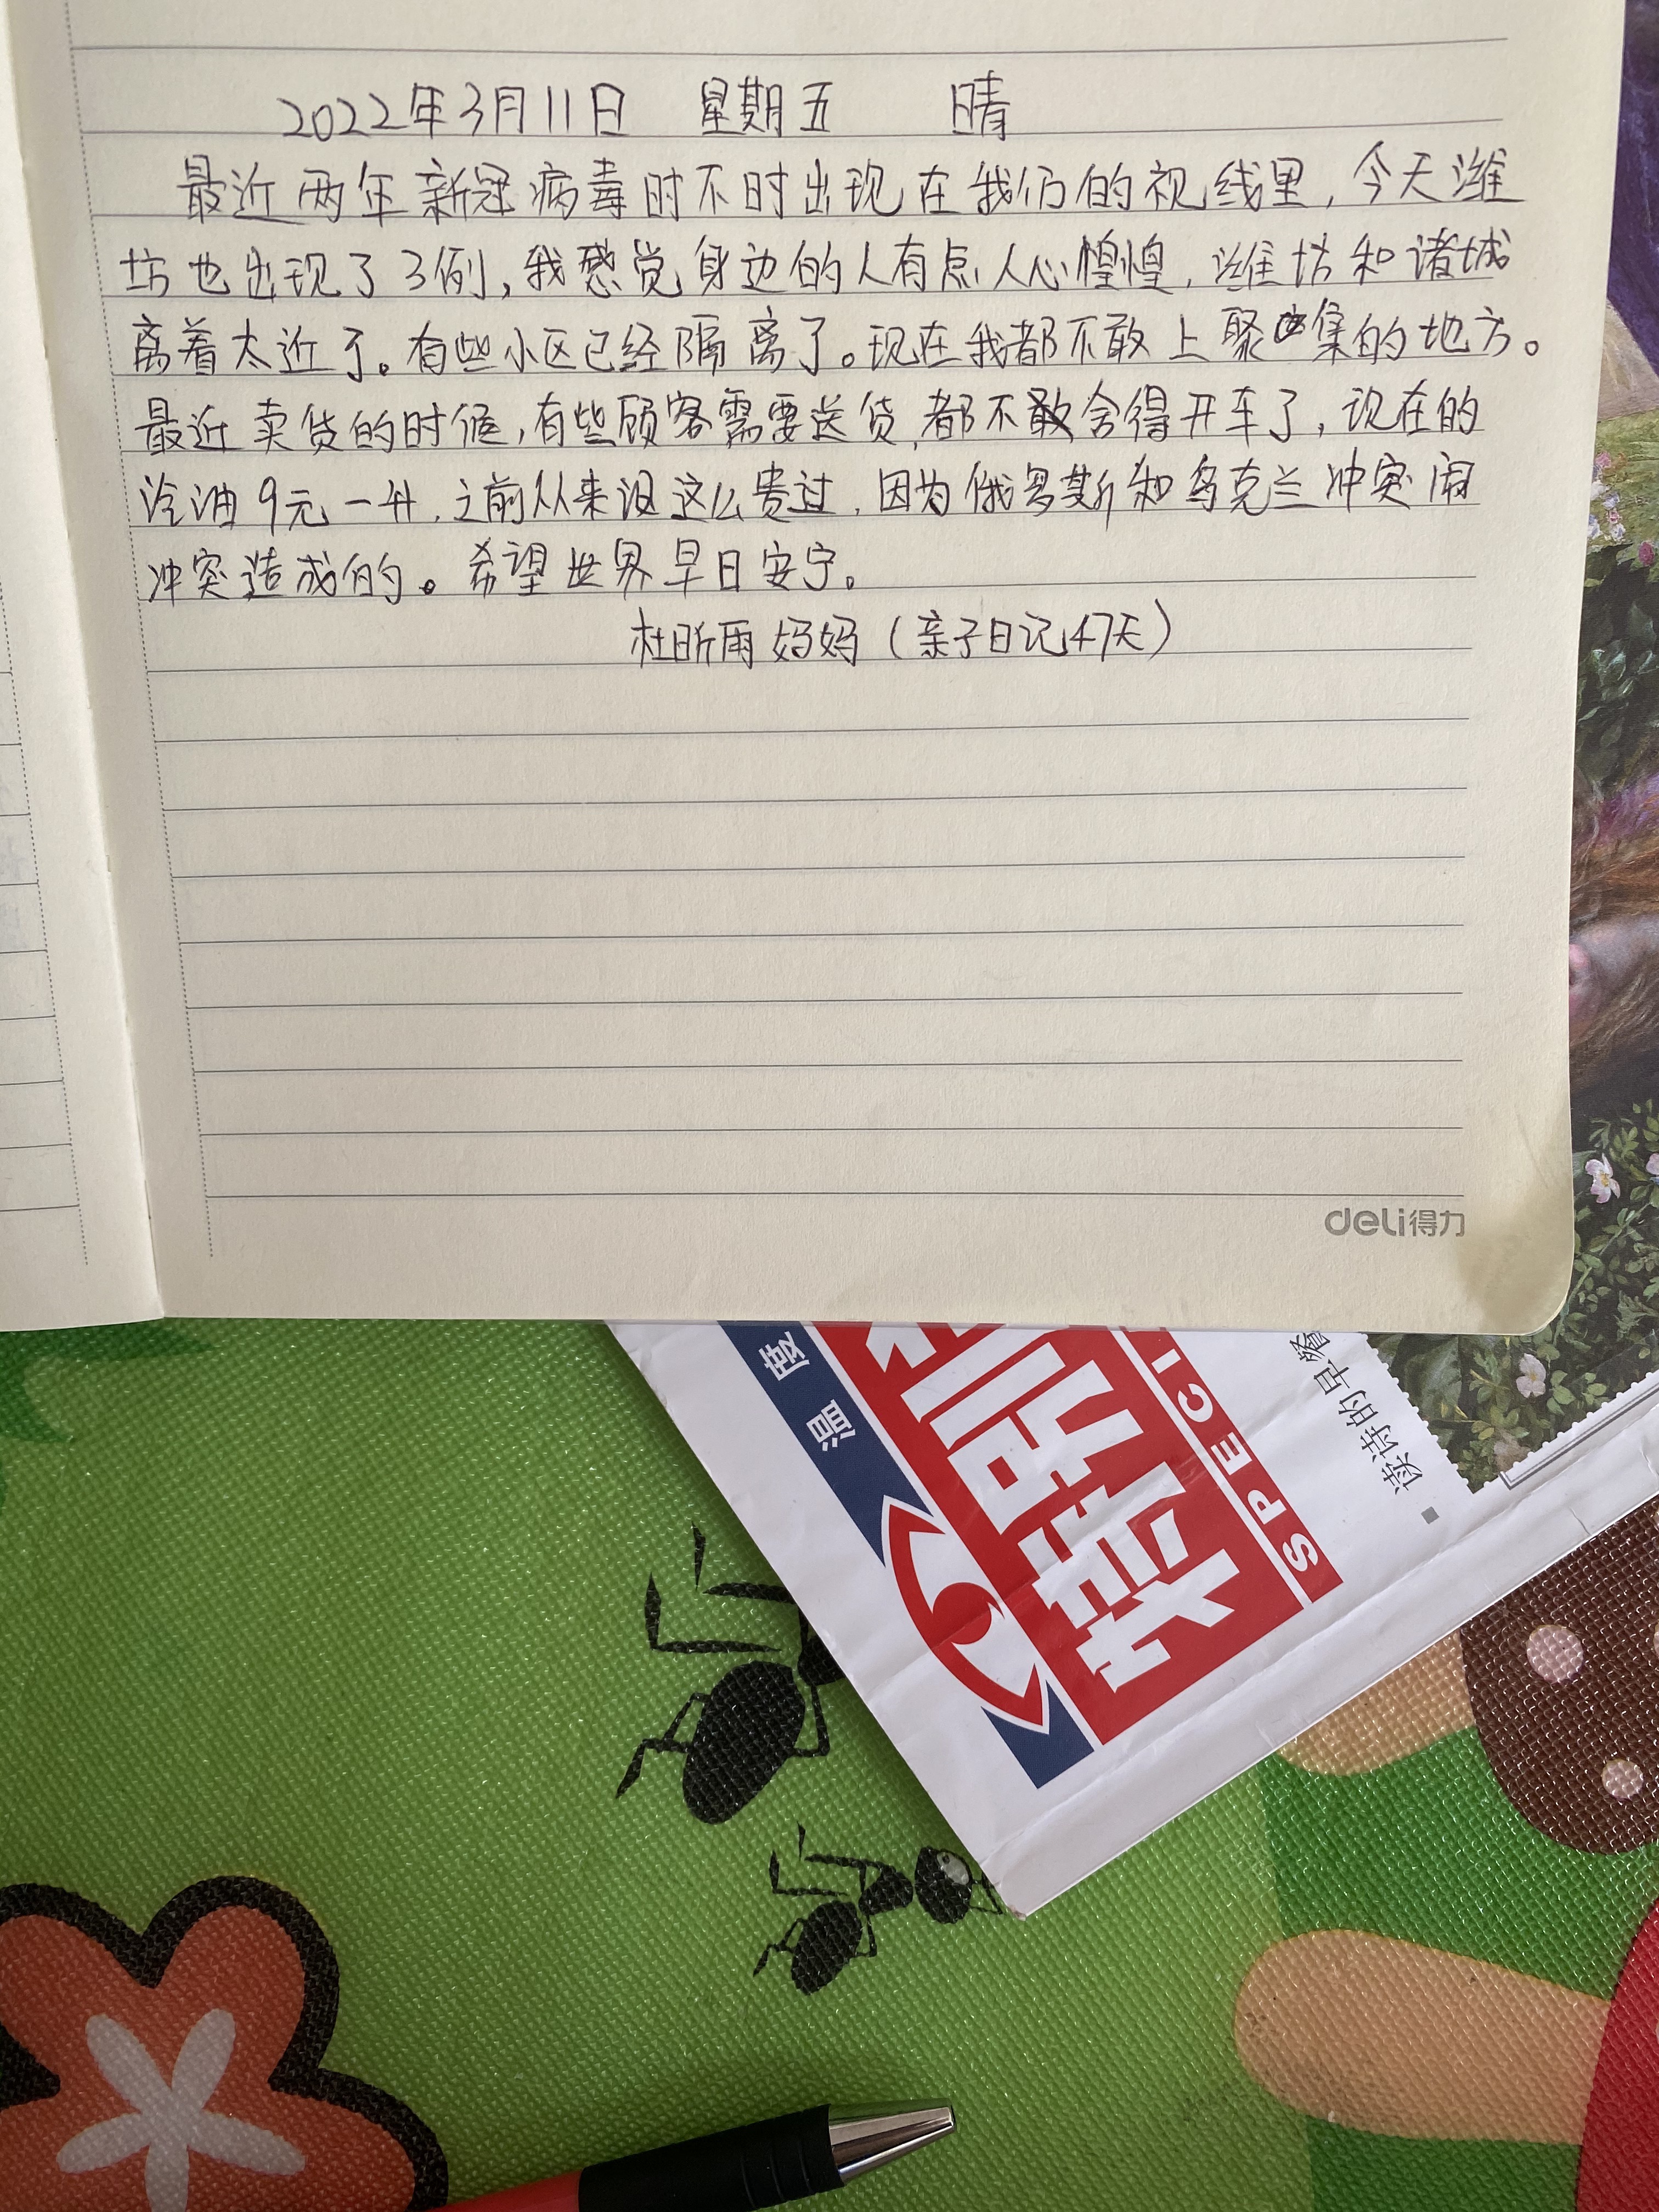 2022年3月11日 星期五 晴
最近两年新冠病毒时不时出现在我们的视线里，今天潍
坊也出现了3例，我感觉身边的人有点人心惶惶，潍坊和诸城
离着太近了。有些小区已经隔离了。现在我都不敢上聚集的地方。
最近卖货的时候，有些顾客需要送货，都不敢舍得开车了，现在的
汽油9元一升，之前从来没这么贵过，因为俄罗斯和乌克兰冲突闹
冲突造成的。希望世界早日安宁。
杜昕雨妈妈（亲子日记47天）
deli得力
温度
特
SPECI
读诗的早餐